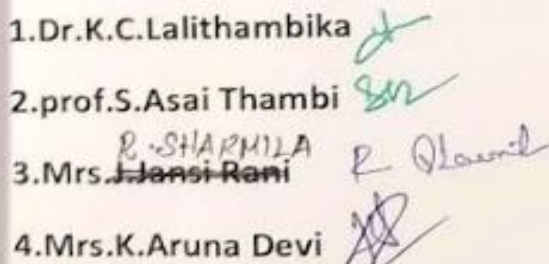 1.Dr.K.C.Lalithambika
2.prof.S.Asai Thambi
R.SHARMILA
3.Mrs.J.Jansi Rani R
4.Mrs.K.Aruna Devi